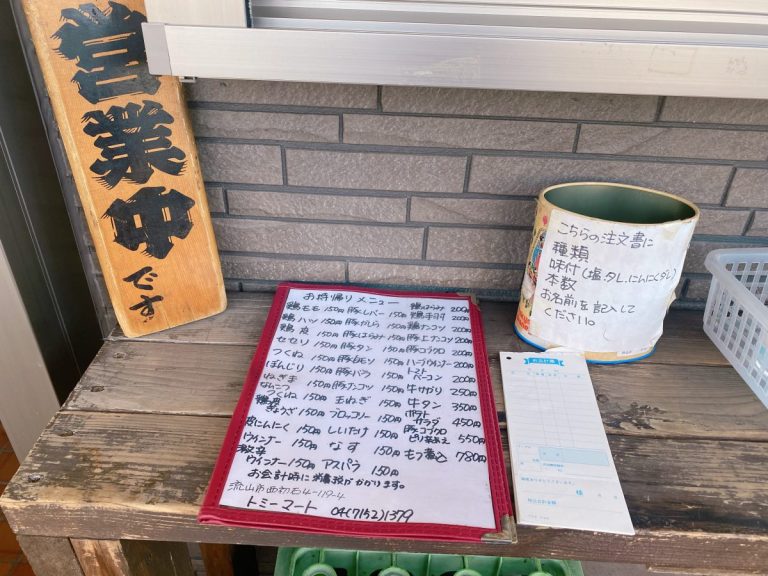 営業中です
お持帰りメニュー
鶏モモ 150円 豚レバー 150円 鶏はらみ 200円
鶏ハツ 150円 豚かしら 150円 鶏手羽 200円
鶏皮 150円 豚はらみ 150円 鶏ナンコツ 200円
セセリ 150円 豚タン 150円 豚上ナンコツ 200円
つくね 150円 豚シロモツ 150円 豚コブクロ 200円
ぼんじり 150円 豚バラ 150円 ハーブウインナー 200円
ねぎま 150円 豚ナンコツ 150円 トマトベーコン 200円
なんこつつくね 150円 玉ねぎ 150円 牛サガリ 250円
鶏皮ぎょうざ 150円 ブロッコリー 150円 牛タン 350円
皮にんにく 150円 しいたけ 150円 ポテトサラダ 450円
ウインナー 150円 なす 150円 豚コブクロピリ辛あえ 550円
激辛ウインナー 150円 アスパラ 150円 もつ煮込 780円
お会計時に消費税がかかります。
流山市西初石4-119-4
トミーマート 04(7152)1379
こちらの注文書に
種類
味付(塩.タレ.にんにくダレ)
本数
お名前を記入して
ください。
お会計票
様